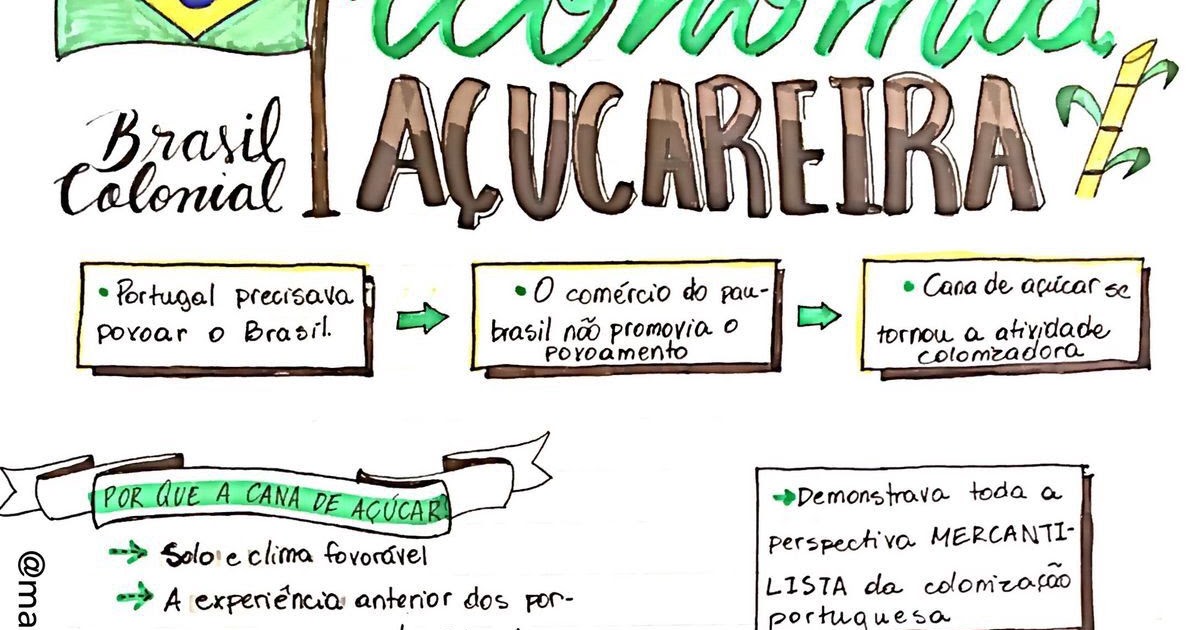 Economia
AÇUCAREIRA
Brasil
Colonial
• Portugal precisava
povoar o Brasil.
• O comércio do pau-
brasil não promovia o
povoamento
• Cana de açúcar se
tornou a atividade
colonizadora
POR QUE A CANA DE AÇÚCAR?
Solo e clima favorável
A experiência anterior dos por-
Demonstrava toda a
perspectiva MERCANTI-
LISTA da colonização
portuguesa
@ma